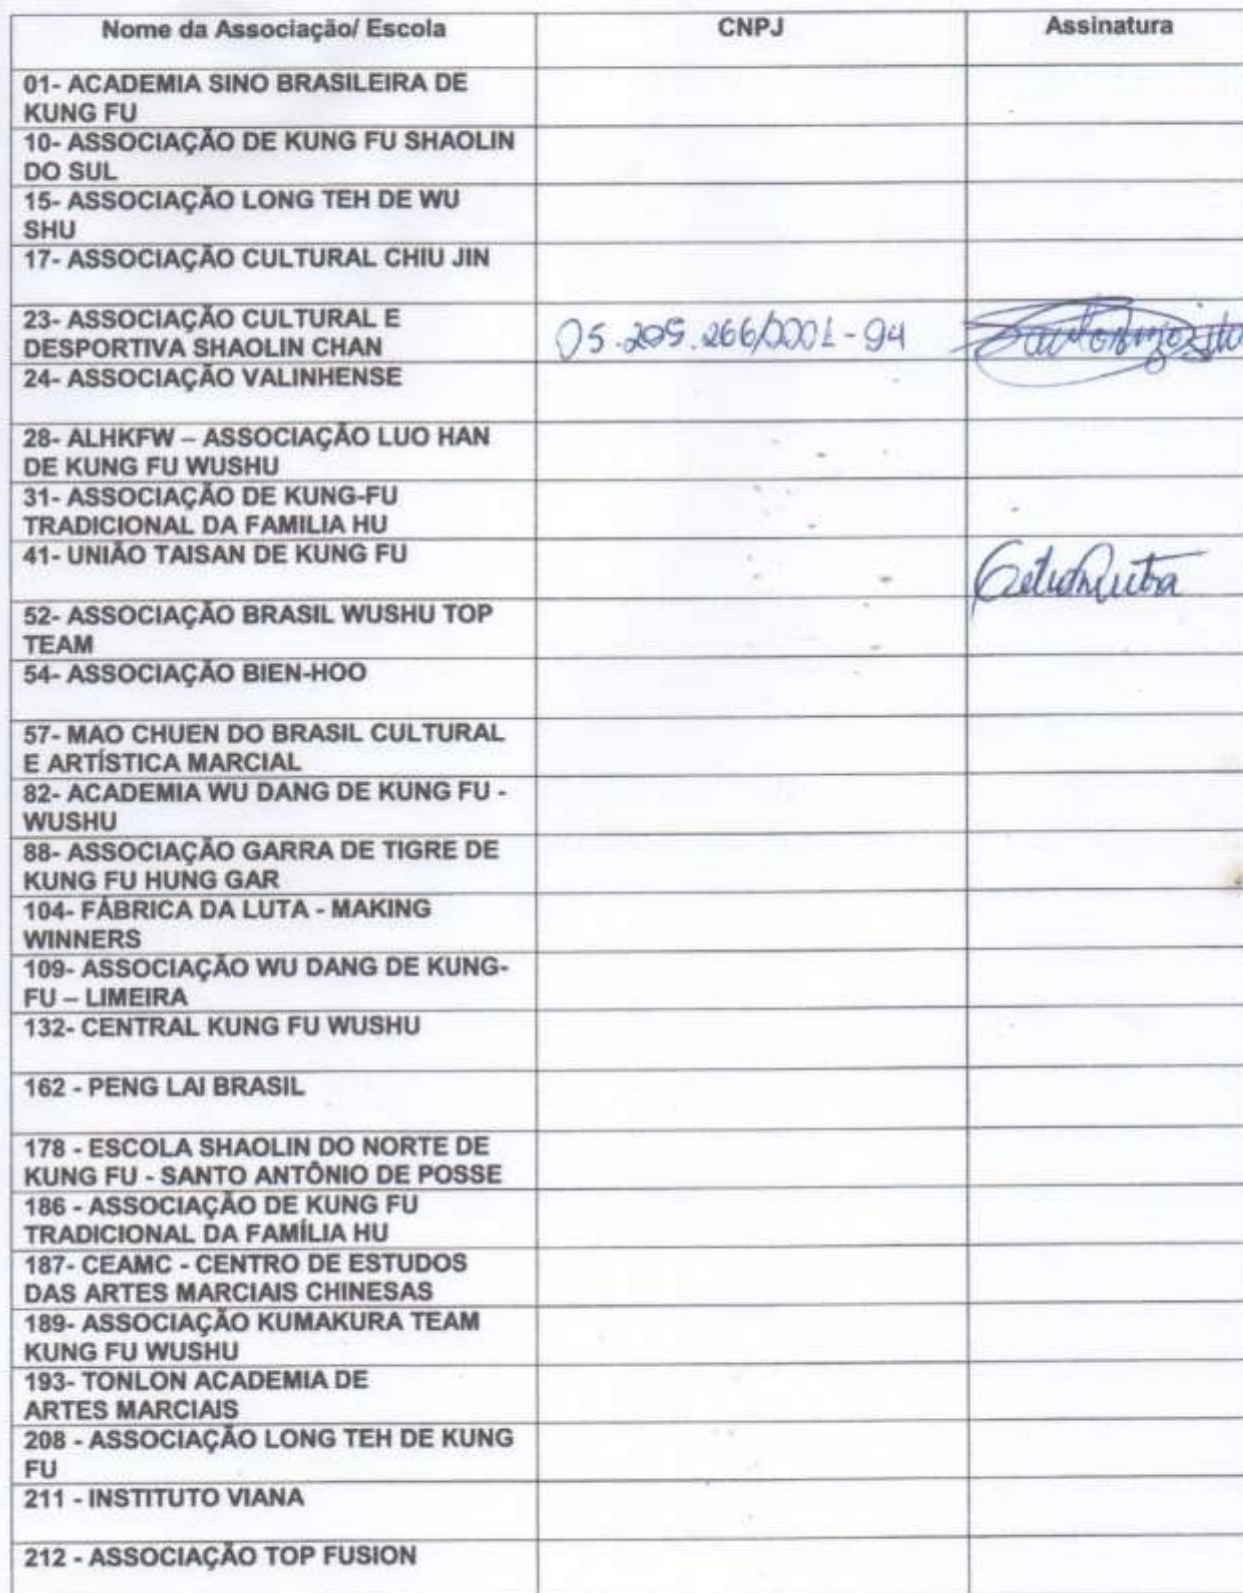 Nome da Associação/ Escola CNPJ Assinatura
01- ACADEMIA SINO BRASILEIRA DE
KUNG FU
10- ASSOCIAÇÃO DE KUNG FU SHAOLIN
DO SUL
15- ASSOCIAÇÃO LONG TEH DE WU
SHU
17- ASSOCIAÇÃO CULTURAL CHIU JIN
23- ASSOCIAÇÃO CULTURAL E
DESPORTIVA SHAOLIN CHAN
05.205.266/0001-94
24- ASSOCIAÇÃO VALINHENSE
28- ALHKFW – ASSOCIAÇÃO LUO HAN
DE KUNG FU WUSHU
31- ASSOCIAÇÃO DE KUNG-FU
TRADICIONAL DA FAMILIA HU
41- UNIÃO TAISAN DE KUNG FU
52- ASSOCIAÇÃO BRASIL WUSHU TOP
TEAM
54- ASSOCIAÇÃO BIEN-HOO
57- MAO CHUEN DO BRASIL CULTURAL
E ARTÍSTICA MARCIAL
82- ACADEMIA WU DANG DE KUNG FU -
WUSHU
88- ASSOCIAÇÃO GARRA DE TIGRE DE
KUNG FU HUNG GAR
104- FÁBRICA DA LUTA - MAKING
WINNERS
109- ASSOCIAÇÃO WU DANG DE KUNG-
FU – LIMEIRA
132- CENTRAL KUNG FU WUSHU
162 - PENG LAI BRASIL
178 - ESCOLA SHAOLIN DO NORTE DE
KUNG FU - SANTO ANTÔNIO DE POSSE
186 - ASSOCIAÇÃO DE KUNG FU
TRADICIONAL DA FAMÍLIA HU
187- CEAMC - CENTRO DE ESTUDOS
DAS ARTES MARCIAIS CHINESAS
189- ASSOCIAÇÃO KUMAKURA TEAM
KUNG FU WUSHU
193- TONLON ACADEMIA DE
ARTES MARCIAIS
208 - ASSOCIAÇÃO LONG TEH DE KUNG
FU
211 - INSTITUTO VIANA
212 - ASSOCIAÇÃO TOP FUSION